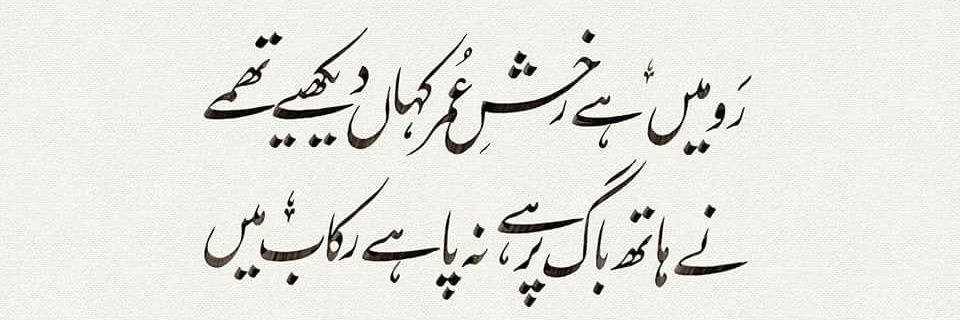 رَو میں ہے رخشِ عُمر کہاں دیکھیے تھمے
نے ہاتھ باگ پر ہے نہ پا ہے رکاب میں